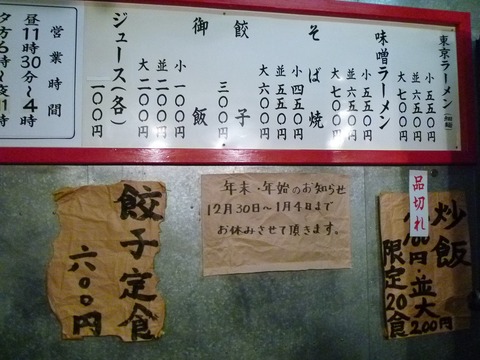 東京ラーメン(細麺)
小 五五〇円
並 六五〇円
大 七〇〇円
味噌ラーメン
並 六五〇円
大 七〇〇円
そば焼
小 四五〇円
並 五五〇円
大 六〇〇円
餃子
三〇〇円
御飯
小 一〇〇円
並 二〇〇円
ジュース(各)
一〇〇円
営業時間
昼11時30分〜4時
夕方6時〜夜1時
餃子定食
六〇〇円
年末・年始のお知らせ
12月30日〜1月4日まで
お休みさせて頂きます。
品切れ
炒飯
並大
200円
限定20食